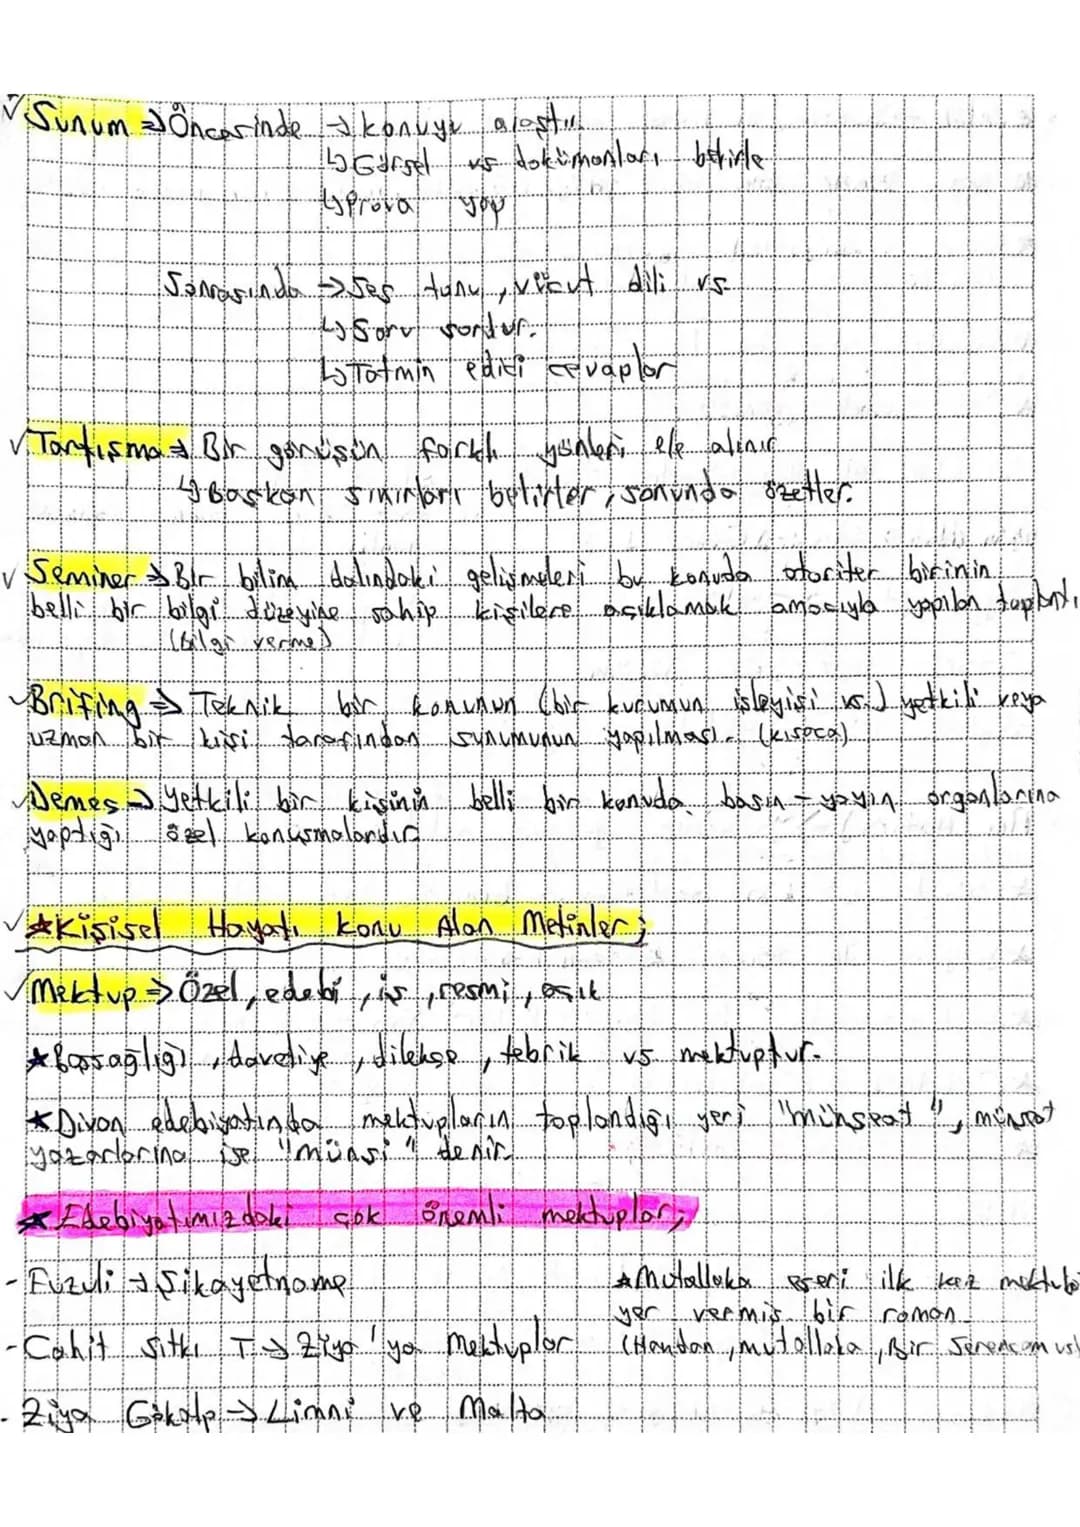 ✓ Sunum ⇒ Öncesinde → konuyu araştır.
↳ Görsel vs dokümanları belirle
↳ Prova yap
Sonrasında → Ses tonu, vücut dili vs
↳ Soru sordur.
↳ Tatmin edici cevaplar
✓ Tartışma ⇒ Bir görüşün farklı yönleri ele alınır
↳ Başkan sınırları belirler, sonunda özetler.
✓ Seminer ⇒ Bir bilim dalındaki gelişmeleri bu konuda otoriter birinin
belli bir bilgi düzeyine sahip kişilere açıklamak amacıyla yapılan toplantı
(Bilgi verme)
✓ Brifing ⇒ Teknik bir konunun (bir kurumun işleyişi vs.) yetkili veya
uzman bir kişi tarafından sunumunun yapılması. (kısaca)
✓ Demeç ⇒ Yetkili bir kişinin belli bir konuda basın-yayın organlarına
yaptığı özel konuşmalardır
✓ ★ Kişisel Hayatı Konu Alan Metinler;
✓ Mektup ⇒ Özel, edebi, iş, resmi, açık
★ Başsağlığı, davetiye, dilekçe, tebrik vs mektuptur.
★ Divan edebiyatında mektupların toplandığı yeri "münşeat", münşeat
yazarlarına ise "münşi" denir.
★ Edebiyatımızdaki çok önemli mektuplar;
- Fuzuli → Şikayetname
★ Mutallaka eseri ilk kez mektuba
yer vermiş bir roman.
- Cahit Sıtkı T → Ziya'ya Mektuplar
(Handan, mutallaka, Bir Serencam vs)
- Ziya Gökalp → Limni ve Malta